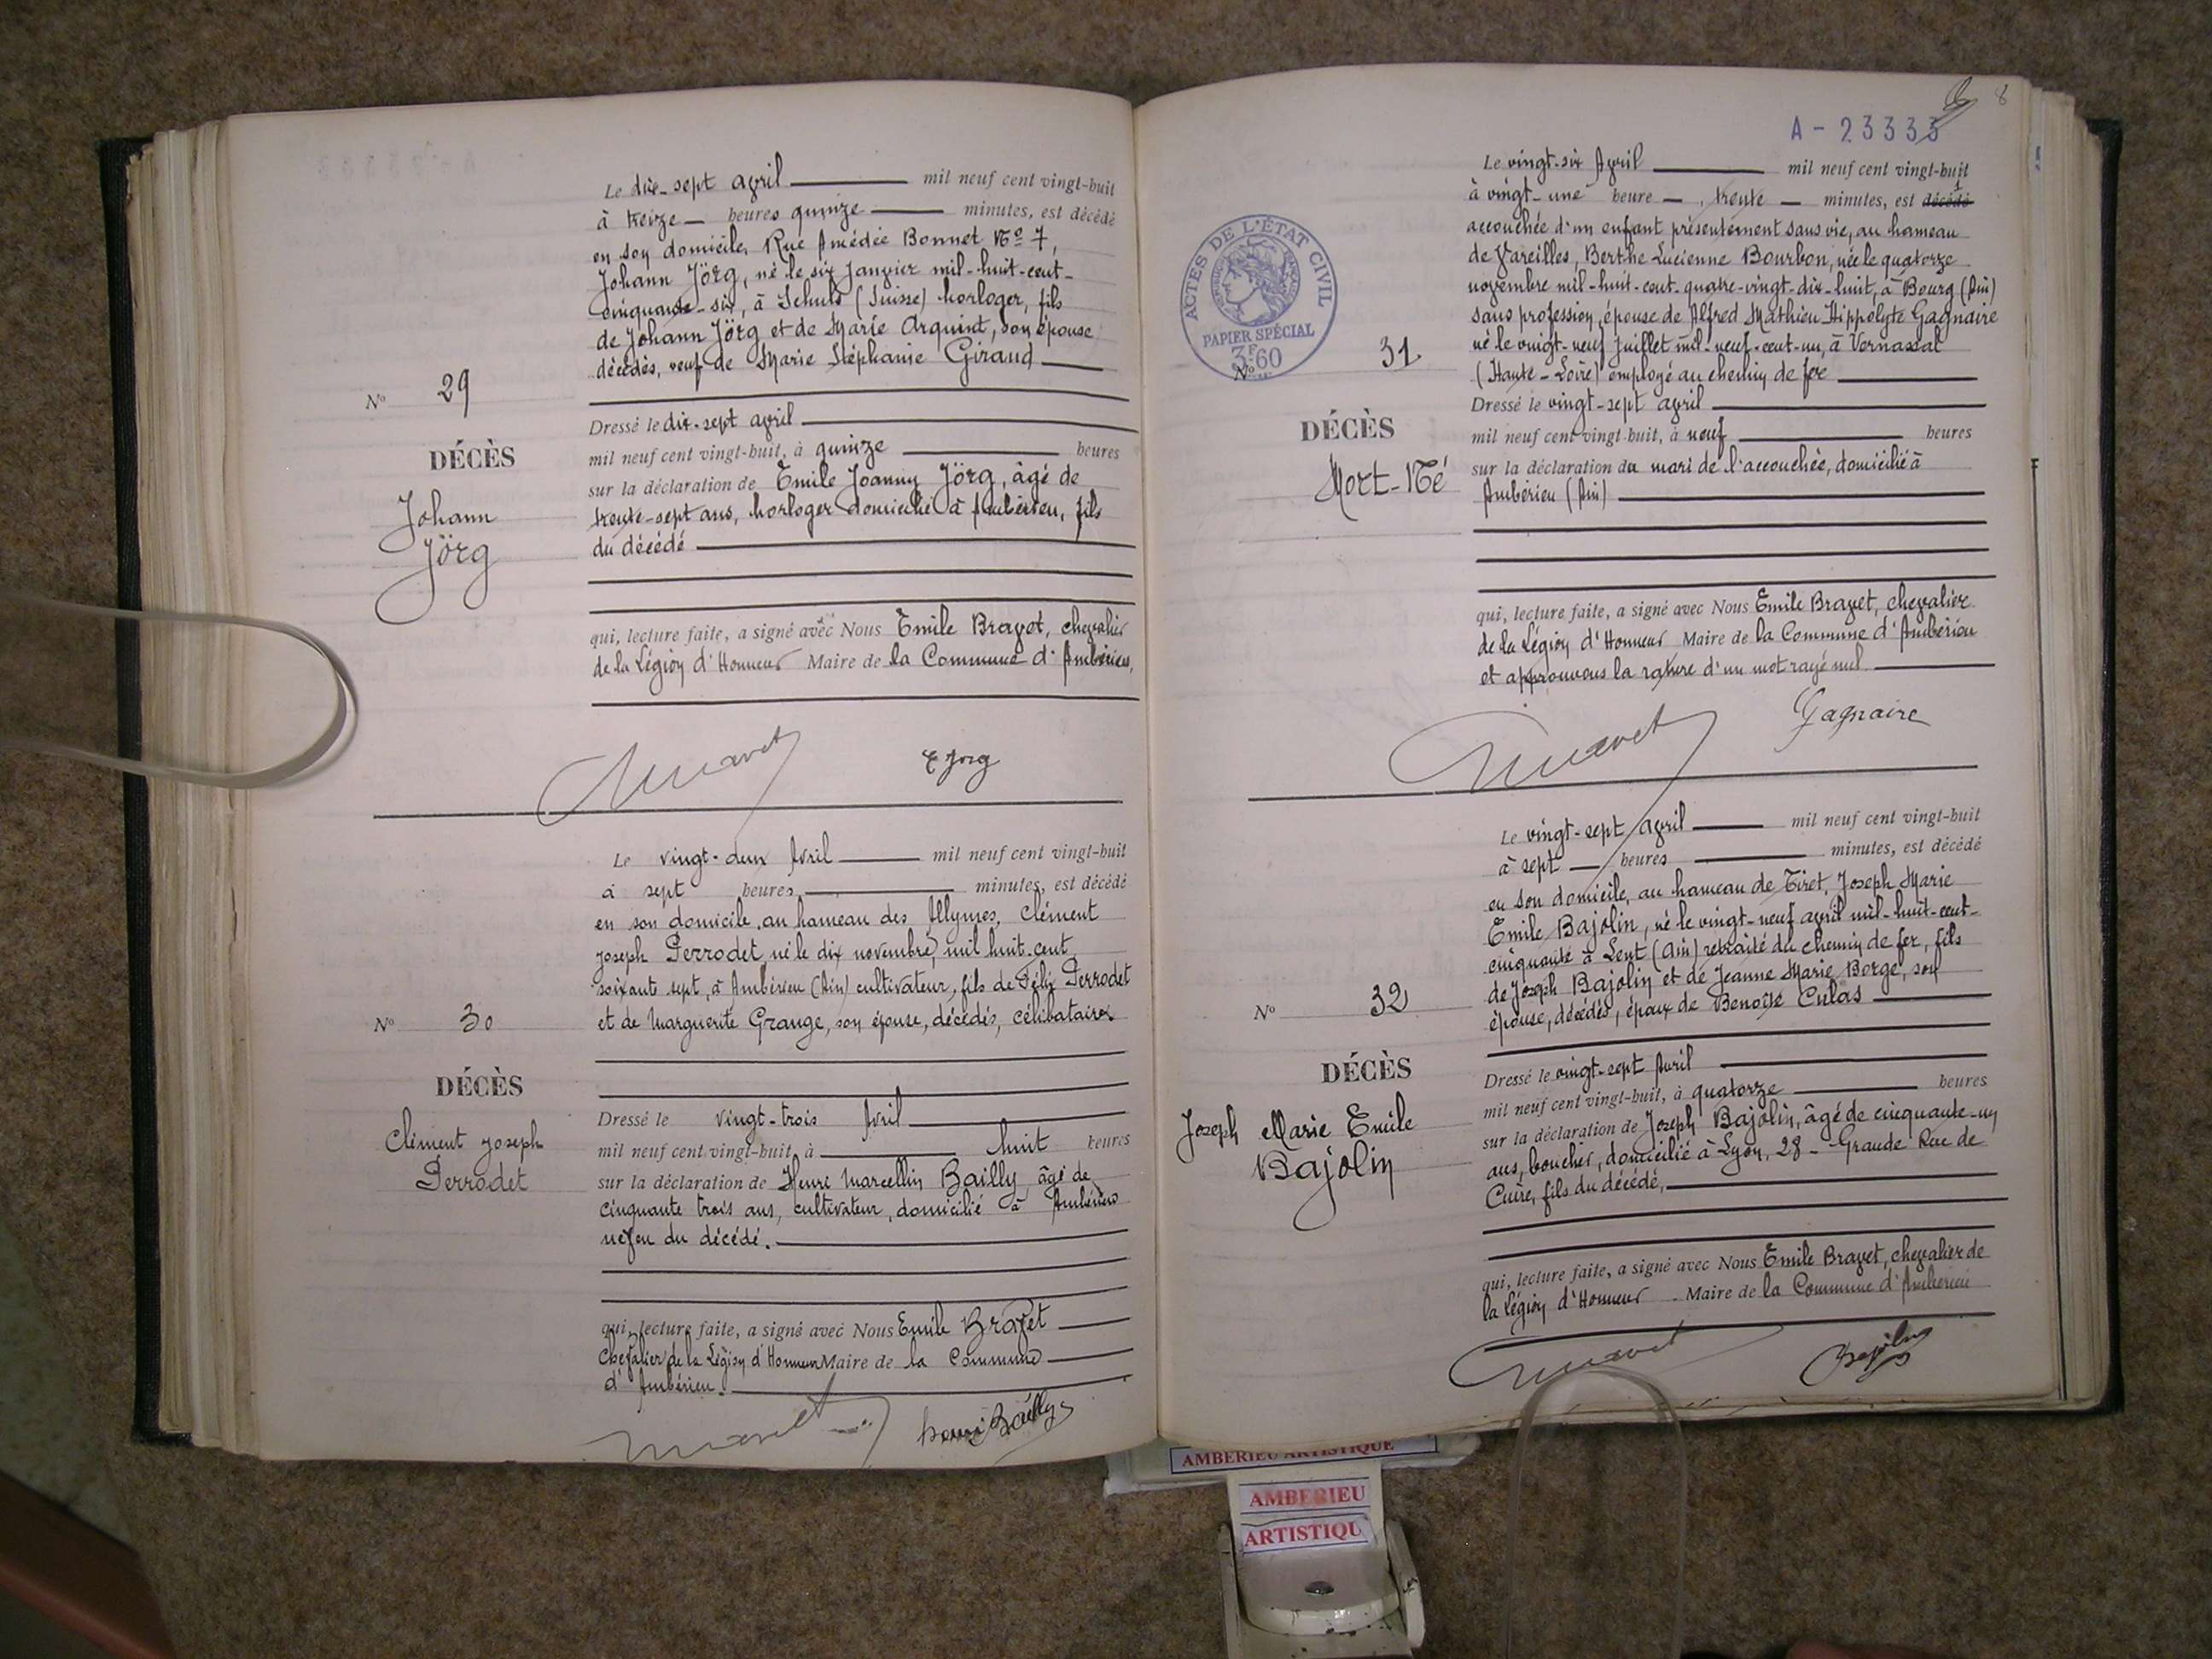 Le dix-sept avril mil neuf cent vingt-huit
à treize heures quinze minutes, est décédé
en son domicile, Rue Amédée Bonnet No 7,
Johann Jörg, né le six Janvier mil-huit-cent-
cinquante-six, à Schuls (Suisse) horloger, fils
de Johann Jörg et de Marie Arquint, son épouse
décédés, veuf de Marie Stéphanie Giraud
No 29
DÉCÈS
Johann
Jörg
Dressé le dix-sept avril
mil neuf cent vingt-huit, à quinze heures
sur la déclaration de Emile Joanny Jörg, âgé de
trente-sept ans, horloger domicilié à Ambérieu, fils
du décédé
qui, lecture faite, a signé avec Nous Emile Bravet, chevalier
de la Légion d'Honneur Maire de la Commune d'Ambérieu,
Bravet
E Jorg
Le vingt-deux Avril mil neuf cent vingt-huit
à sept heures, minutes, est décédé
en son domicile, au hameau des Allymes, Clément
Joseph Perrodet, né le dix novembre, mil huit-cent
soixante sept, à Ambérieu (Ain) cultivateur, fils de Félix Perrodet
et de Marguerite Grange, son épouse, décédés, célibataire.
No 30
DÉCÈS
Clément Joseph
Perrodet
Dressé le vingt-trois Avril
mil neuf cent vingt-huit à huit heures
sur la déclaration de Henri Marcellin Bailly, âgé de
cinquante trois ans, cultivateur, domicilié à Ambérieu
neveu du décédé.
qui, lecture faite, a signé avec Nous Emile Bravet
Chevalier de la Légion d'Honneur Maire de la Commune
d'Ambérieu.
Bravet
henri Bailly
8
A - 23333
ACTES DE L'ÉTAT CIVIL
RÉPUBLIQUE FRANÇAISE
PAPIER SPÉCIAL
3F.60
Le vingt-six Avril mil neuf cent vingt-huit
à vingt-une heure trente minutes, est décédé
accouchée d'un enfant présentement sans vie, au hameau
de Vareilles, Berthe Lucienne Bourbon, née le quatorze
novembre mil-huit-cent-quatre-vingt-dix-huit, à Bourg (Ain)
sans profession, épouse de Alfred Mathieu Hippolyte Gagnaire
né le vingt-neuf Juillet mil-neuf-cent-un, à Vernassal
(Haute-Loire) employé au chemin de fer
No 31
DÉCÈS
Mort-Né
Dressé le vingt-sept avril
mil neuf cent vingt-huit, à neuf heures
sur la déclaration du mari de l'accouchée, domicilié à
Ambérieu (Ain)
qui, lecture faite, a signé avec Nous Emile Bravet, chevalier
de la Légion d'Honneur Maire de la Commune d'Ambérieu
et approuvons la rature d'un mot rayé nul
Bravet
Gagnaire
Le vingt-sept avril mil neuf cent vingt-huit
à sept heures minutes, est décédé
en son domicile, au hameau de Tiret, Joseph Marie
Emile Bajolin, né le vingt-neuf avril mil-huit-cent-
cinquante à Lent (Ain) retraité du chemin de fer, fils
de Joseph Bajolin et de Jeanne Marie Borge, son
épouse, décédés, époux de Benoîte Culas
No 32
DÉCÈS
Joseph Marie Emile
Bajolin
Dressé le vingt-sept Avril
mil neuf cent vingt-huit, à quatorze heures
sur la déclaration de Joseph Bajolin, âgé de cinquante-un
ans, boucher, domicilié à Lyon, 28 - Grande Rue de
Cuire, fils du décédé,
qui, lecture faite, a signé avec Nous Emile Bravet, chevalier de
la Légion d'Honneur Maire de la Commune d'Ambérieu
Bravet
Bajolin
AMBERIEU ARTISTIQUE
AMBERIEU
ARTISTIQU